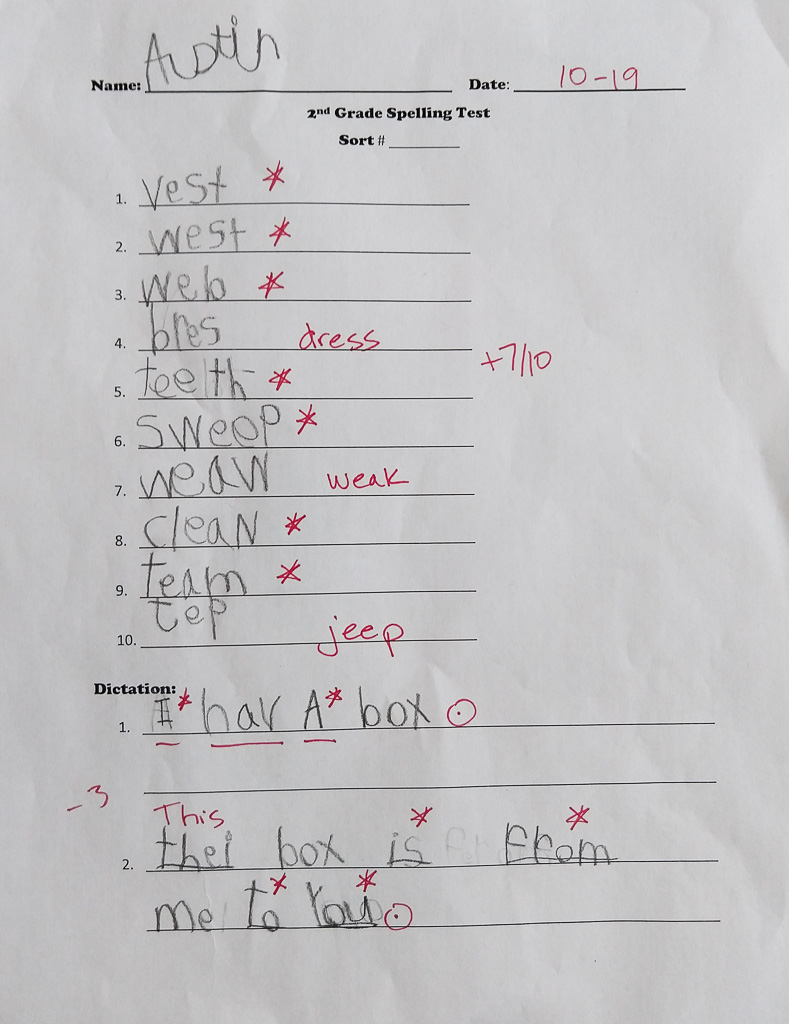 Austin
Name: Date: 10-19
2nd Grade Spelling Test
Sort #
1. vest *
2. west *
3. web *
4. bres dress
+7/10
5. teeth *
6. sweep *
7. weaw weak
8. cleaN *
9. team *
10. tep jeep
Dictation:
1. I* hav A* box .
-3
This * *
2. thei box is From
me to* You* .